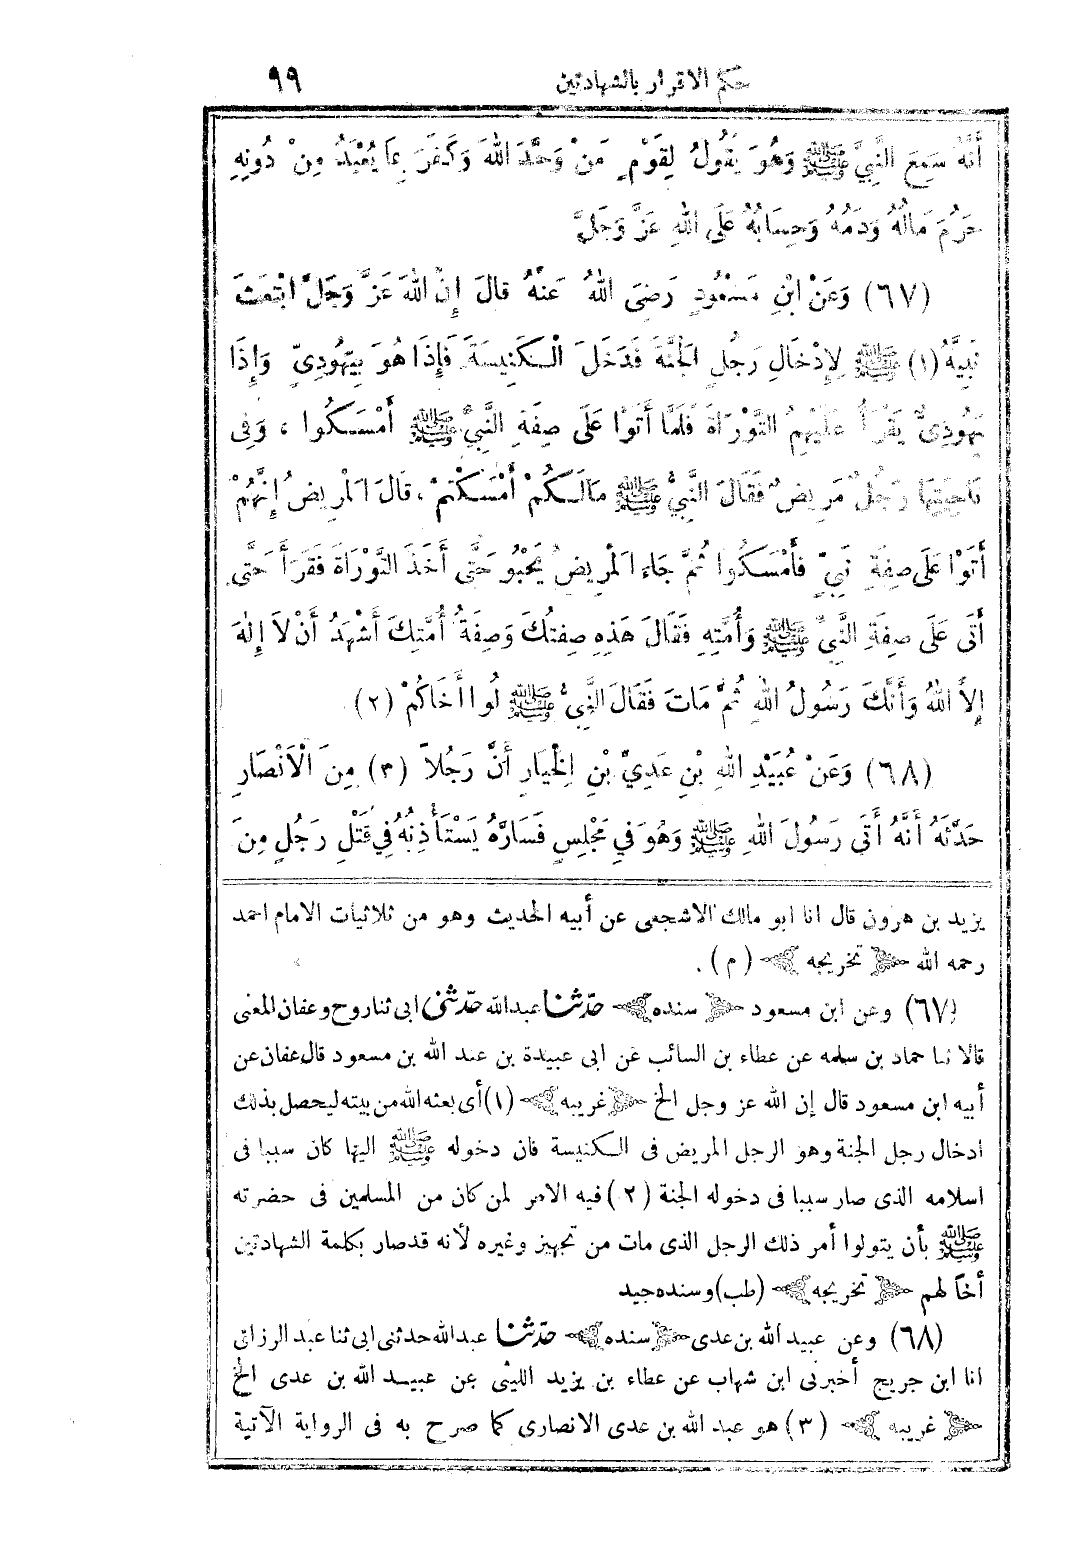 حكم الاقرار بالشهادتين ٩٩
أَنَّهُ سَمِعَ النَّبِيَّ ﷺ وَهُوَ يَقُولُ لِقَوْمٍ مَنْ وَحَّدَ اللهَ وَكَفَرَ بِمَا يُعْبَدُ مِنْ دُونِهِ
حَرُمَ مَالُهُ وَدَمُهُ وَحِسَابُهُ عَلَى اللهِ عَزَّ وَجَلَّ
(٦٧) وَعَنْ ابْنِ مَسْعُودٍ رَضِىَ اللهُ عَنْهُ قَالَ إِنَّ اللهَ عَزَّ وَجَلَّ ابْتَعَثَ
نَبِيَّهُ (١) ﷺ لِإِدْخَالِ رَجُلٍ الْجَنَّةَ فَدَخَلَ الْكَنِيسَةَ فَإِذَا هُوَ بِيَهُودِىٍّ وَإِذَا
يَهُودِىٌّ يَقْرَأُ عَلَيْهِمُ التَّوْرَاةَ فَلَمَّا أَتَوْا عَلَى صِفَةِ النَّبِىِّ ﷺ أَمْسَكُوا ، وَفِى
نَاحِيَتِهَا رَجُلٌ مَرِيضٌ فَقَالَ النَّبِىُّ ﷺ مَالَكُمْ أَمْسَكْتُمْ ، قَالَ الْمَرِيضُ إِنَّهُمْ
أَتَوْا عَلَى صِفَةِ نَبِىٍّ فَأَمْسَكُوا ثُمَّ جَاءَ الْمَرِيضُ يَحْبُو حَتَّى أَخَذَ التَّوْرَاةَ فَقَرَأَ حَتَّى
أَتَى عَلَى صِفَةِ النَّبِىِّ ﷺ وَأُمَّتِهِ فَقَالَ هَذِهِ صِفَتُكَ وَصِفَةُ أُمَّتِكَ أَشْهَدُ أَنْ لاَ إِلٰهَ
إِلاَّ اللهُ وَأَنَّكَ رَسُولُ اللهِ ثُمَّ مَاتَ فَقَالَ النَّبِىُّ ﷺ لُوا أَخَاكُمْ (٢)
(٦٨) وَعَنْ عُبَيْدِ اللهِ بْنِ عَدِيِّ بْنِ الْخِيَارِ أَنَّ رَجُلاً (٣) مِنَ الْأَنْصَارِ
حَدَّثَهُ أَنَّهُ أَتَى رَسُولَ اللهِ ﷺ وَهُوَ فِي مَجْلِسٍ فَسَارَّهُ يَسْتَأْذِنُهُ فِي قَتْلِ رَجُلٍ مِنَ
يزيد بن هرون قال انا ابو مالك الاشجعى عن أبيه الحديث وهو من ثلاثيات الامام احمد
رحمه الله ﴿ تخريجه ﴾ (م) .
(٦٧) وعن ابن مسعود ﴿ سنده ﴾ حدّثنا عبدالله حدّثنى ابى ثنا روح وعفان المعنى
قالا ثنا حماد بن سلمه عن عطاء بن السائب عن ابى عبيدة بن عبد الله بن مسعود قال عفان عن
أبيه ابن مسعود قال إن الله عز وجل الخ ﴿ غريبه ﴾ (١) أى بعثه الله من بيته ليحصل بذلك
ادخال رجل الجنة وهو الرجل المريض فى الكنيسة فان دخوله ﷺ اليها كان سببا فى
اسلامه الذى صار سببا فى دخوله الجنة (٢) فيه الامر لمن كان من المسلمين فى حضرته
ﷺ بأن يتولوا أمر ذلك الرجل الذى مات من تجهيز وغيره لأنه قدصار بكلمة الشهادتين
أخاً لهم ﴿ تخريجه ﴾ (طب) وسنده جيد
(٦٨) وعن عبيد الله بن عدى ﴿ سنده ﴾ حدّثنا عبدالله حدثنى ابى ثنا عبد الرزاق
انا ابن جريج أخبرنى ابن شهاب عن عطاء بن يزيد الليثى عن عبيد الله بن عدى الخ
﴿ غريبه ﴾ (٣) هو عبد الله بن عدى الانصارى كما صرح به فى الرواية الآتية